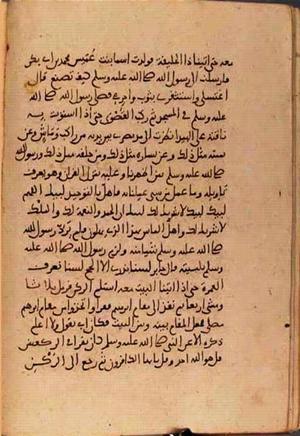 معه حتى اتينا ذا الحليفة فولدت اسما بنت عميس محمد بن ابى بكر
فارسلت الى رسول الله صلى الله عليه وسلم كيف تصنع قال
اغتسلى واستثفرى بثوب واحرمى فصلى رسول الله صلى الله
عليه وسلم فى المسجد ثم ركب القصوى حتى اذا استوت به
ناقته على البيدا نظرت الى مد بصرى بين يديه من راكب وماش وعن
يمينه مثل ذلك وعن يساره مثل ذلك ومن خلفه مثل ذلك ورسول الله
صلى الله عليه وسلم بين اظهرنا وعليه ينزل القران وهو يعرف
تاويله وما عمل من شى عملنا به فاهل بالتوحيد لبيك اللهم
لبيك لبيك لا شريك لك لبيك ان الحمد والنعمة لك والملك
لا شريك لك واهل الناس بهذا الذى يهلون فلم يرد رسول الله
صلى الله عليه وسلم شيا منه ولزم رسول الله صلى الله عليه
وسلم تلبيته قال جابر لسنا ننوى الا الحج لسنا نعرف
العمرة حتى اذا اتينا البيت معه استلم الركن فرمل ثلاثا
ومشى اربعا ثم نفذ الى مقام ابرهيم فقرا واتخذوا من مقام ابرهيم
مصلى فجعل المقام بينه وبين البيت فكان ابى يقول ولا اعلمه
ذكره الا عن النبى صلى الله عليه وسلم كان يقرا فى الركعتين
قل هو الله احد وقل يا ايها الكافرون ثم رجع الى الركن